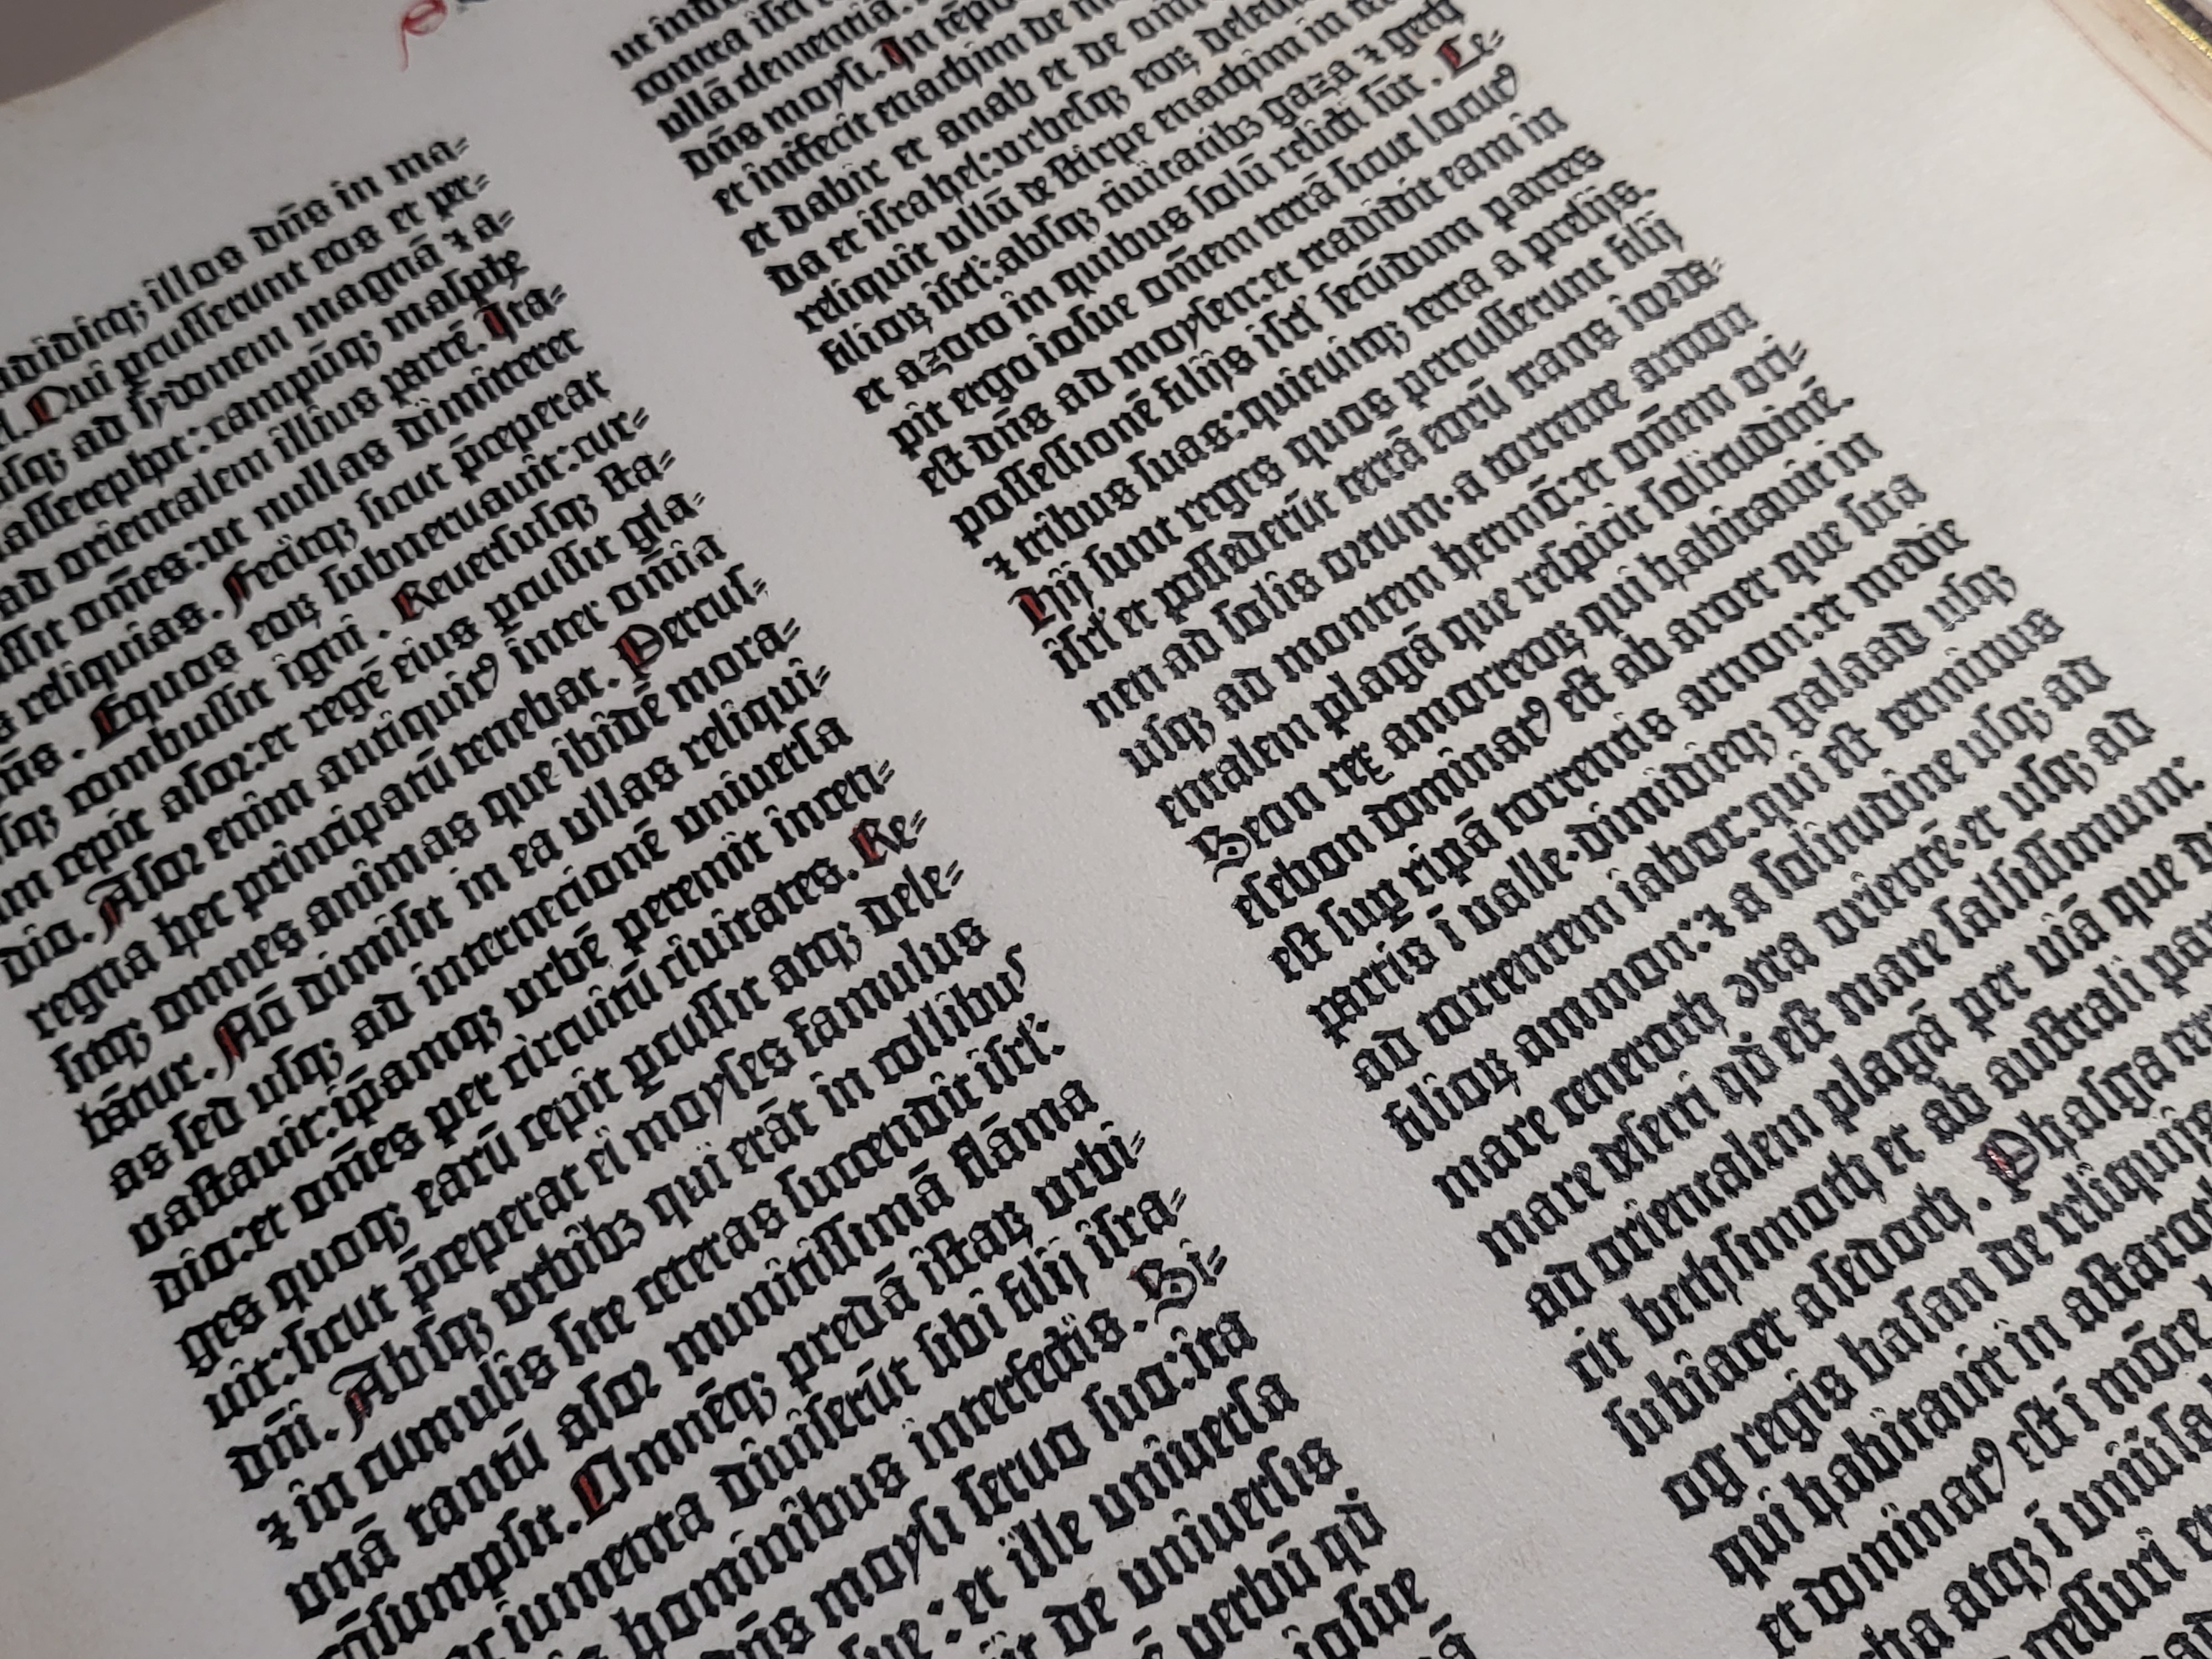 illos dn̄s in ma⸗
Qui ꝑcusserunt eos et per⸗
ad sydonem magnā ⁊ a⸗
campūqꝫ masphe
ad orientalem illius partē. Isra⸗
om̄es:ut nullas dimitteret
reliquias. Fecitqꝫ sicut p̄ceperat
Equos eoꝝ subneruauit:cur⸗
combussit igni. Reuersusqꝫ sta⸗
cepit asor:et regē eius ꝑcussit gla⸗
dio. Asor enim antiquitꝰ inter om̄ia
regna hec principatū tenebat. Percus⸗
sitqꝫ omnes animas que ibidē mora⸗
bātur. Nō dimisit in ea ullas reliqui⸗
as sed usqꝫ ad internecionē uniuersa
uastauit:ip̄amqꝫ urbē peremit incen⸗
dio:et om̄es per circuitū ciuitates. Re⸗
ges quoqꝫ earū cepit ꝑcussit atqꝫ dele⸗
uit:sicut p̄ceperat ei moyses famulus
dn̄i. Absqꝫ urbibꝫ que erāt in collibus
⁊ in cumulis site ceteras succendit isrl̄:
unā tantū asor munitissimā flāma
cōsumpsit. Omnēqꝫ predā istaꝝ urbi⸗
iumenta diuiserūt sibi filij isra⸗
hominibus interfectis. Si⸗
dn̄s moysi seruo suo:ita
et ille uniuersa
de uniuersis
uerbū qd̓
iosue
contra isrl̄
ullā clementiā.
dn̄s moysi. In
et interfecit enachim de
et dabir et anab et de om̄i
da et israhel:urbesqꝫ eoꝝ deleuit
reliquit ullū de stirpe enachim in
filioꝝ isrl̄:absqꝫ ciuitatibꝫ gaza ⁊ geth
et azoto in quibus solū relicti sūt. Ce⸗
pit ergo iosue om̄em terrā sicut locutꝰ
est dn̄s ad moysen:et tradidit eam in
possessionē filijs isrl̄ secūdum partes
⁊ tribus suas:quieuitqꝫ terra a prelijs.
Hij sunt reges quos percusserunt filij
isrl̄ et possederūt terrā eorū trans iorda⸗
nen ad solis ortum·a torrente arnon
usqꝫ ad montem hermō:et om̄em ori⸗
entalem plagā que respicit solitudinē.
Seon rex amorreoꝝ qui habitauit in
esebon dominatꝰ est ab aroer que sita
est suꝑ ripā torrentis arnon:et medie
partis ī ualle·dimidieqꝫ galaad usqꝫ
ad torrentem iaboc:qui est terminus
filioꝝ ammon:⁊ a solitudine usqꝫ ad
mare ceneroth ꝯtra orientē·et usqꝫ ad
mare deserti qd̓ est mare salsissimum:
ad orientalem plagā per uiā que
cit bethsimoth et ab australi
subiacet asedoth. Phasga
og regis basan de reliquijs
qui habitauit in astaroth
et dominatꝰ est ī mōte
atqꝫ ī uniūsa
gessuri